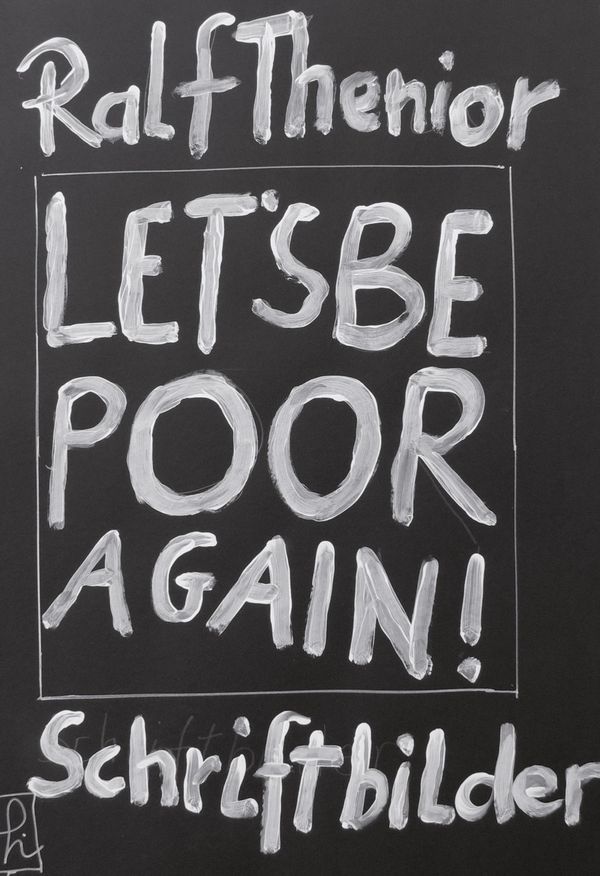 Ralf Thenior
LET'S BE
POOR
AGAIN!
Schriftbilder